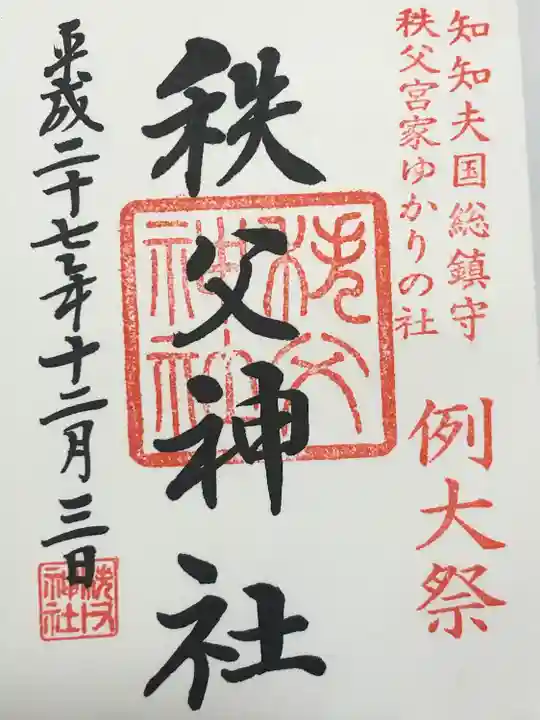 知知夫国総鎮守
秩父宮家ゆかりの社
例大祭
秩父神社
秩父神社
平成二十七年十二月三日
秩父神社